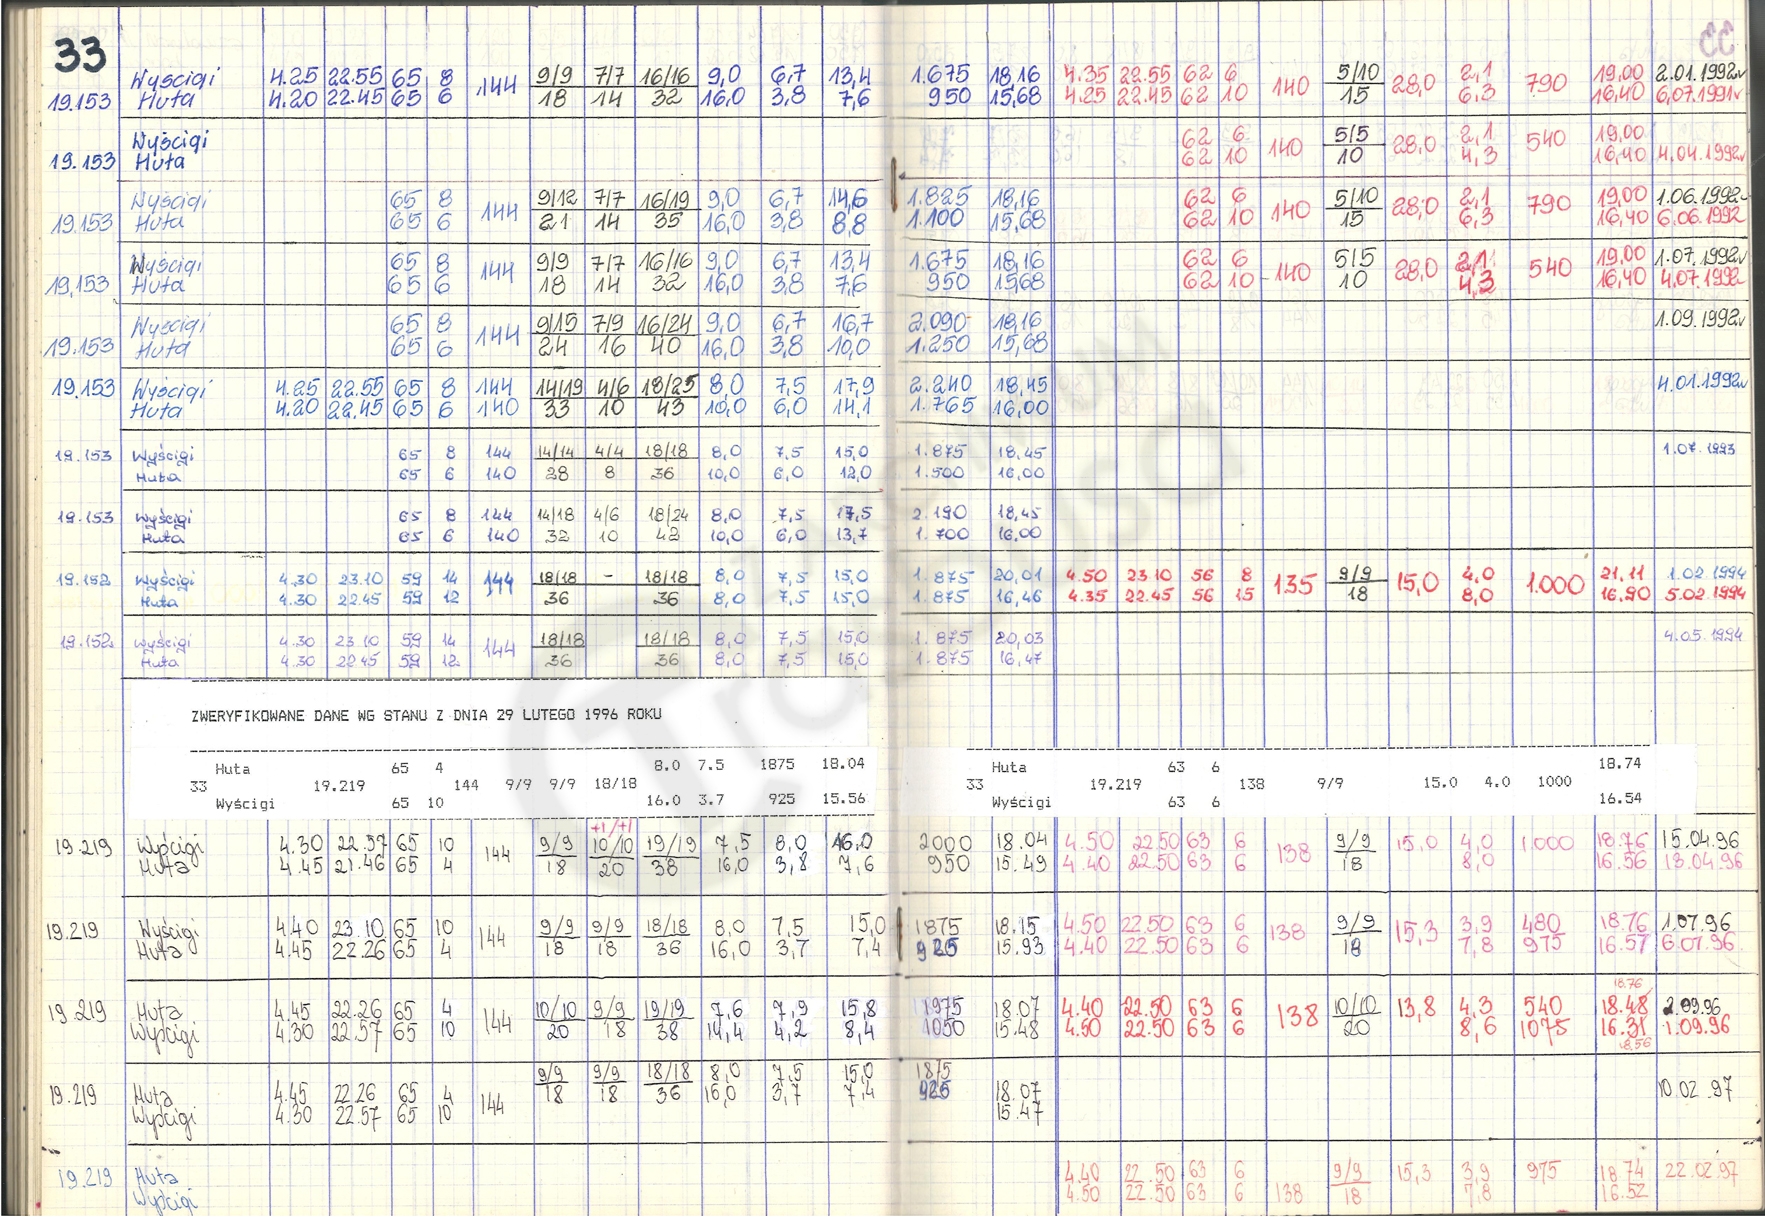 33
Wyścigi 4.25 22.55 65 8 9/9 7/7 16/16 9,0 6,7 13,4 1.675 18,16 4.35 22.55 62 6 5/10 2,1 19,00 2.01.1992
19.153 Huta 4.20 22.45 65 6 144 18 14 32 16,0 3,8 7,6 950 15,68 4.25 22.45 62 10 140 15 28,0 6,3 790 16,40 6,07.1991
Wyścigi 62 6 5/5 2,1 19,00
19.153 Huta 62 10 140 10 28,0 4,3 540 16,40 4.04.1992
Wyścigi 65 8 9/12 7/7 16/19 9,0 6,7 14,6 1.825 18,16 62 6 5/10 2,1 19,00 1.06.1992
19.153 Huta 65 6 144 21 14 35 16,0 3,8 8,8 1.100 15,68 62 10 140 15 28,0 6,3 790 16,40 6.06.1992
Wyścigi 65 8 9/9 7/7 16/16 9,0 6,7 13,4 1.675 18,16 62 6 5/5 2,1 19,00 1.07.1992
19.153 Huta 65 6 144 18 14 32 16,0 3,8 7,6 950 15,68 62 10 140 10 28,0 4,3 540 16,40 4.07.1992
Wyścigi 65 8 9/15 7/9 16/24 9,0 6,7 16,7 2.090 18,16 1.09.1992
19.153 Huta 65 6 144 24 16 40 16,0 3,8 10,0 1.250 15,68
19.153 Wyścigi 4.25 22.55 65 8 144 14/19 4/6 18/25 8,0 7,5 17,9 2.240 18,45 4.01.1992
Huta 4.20 22.45 65 6 140 33 10 43 10,0 6,0 14,1 1.765 16,00
19.153 Wyścigi 65 8 144 14/14 4/4 18/18 8,0 7,5 15,0 1.875 18,45 1.07.1993
Huta 65 6 140 28 8 36 10,0 6,0 12,0 1.500 16,00
19.153 Wyścigi 65 8 144 14/18 4/6 18/24 8,0 7,5 17,5 2.190 18,45
Huta 65 6 140 32 10 42 10,0 6,0 13,7 1.700 16,00
19.152 Wyścigi 4.30 23.10 59 14 144 18/18 - 18/18 8,0 7,5 15,0 1.875 20,01 4.50 23 10 56 8 135 9/9 15,0 4,0 1.000 21,11 1.02 1994
Huta 4.30 22.45 59 12 36 36 8,0 7,5 15,0 1.875 16,46 4.35 22.45 56 15 18 8,0 16.90 5.02 1994
19.152 Wyścigi 4.30 23 10 59 14 144 18/18 18/18 8,0 7,5 15,0 1.875 20,03 4.05 1994
Huta 4.30 22 45 59 12 36 36 8,0 7,5 15,0 1.875 16,47
ZWERYFIKOWANE DANE WG STANU Z DNIA 29 LUTEGO 1996 ROKU
Huta 65 4 8.0 7.5 1875 18.04 Huta 63 6 18.74
33 19.219 144 9/9 9/9 18/18 33 19.219 138 9/9 15.0 4.0 1000
Wyścigi 65 10 16.0 3.7 925 15.56 Wyścigi 63 6 16.54
+1/+1
19.219 Wyścigi 4.30 22.57 65 10 144 9/9 10/10 19/19 7,5 8,0 16,0 2000 18.04 4.50 22.50 63 6 138 9/9 15,0 4,0 1.000 18.76 15.04.96
Huta 4.45 21.46 65 4 18 20 38 16,0 3,8 7,6 950 15.49 4.40 22.50 63 6 18 8,0 16.56 13.04.96
19.219 Wyścigi 4.40 23.10 65 10 144 9/9 9/9 18/18 8,0 7,5 15,0 1875 18.15 4.50 22.50 63 6 138 9/9 15,3 3,9 480 18.76 1.07.96
Huta 4.45 22.26 65 4 18 18 36 16,0 3,7 7,4 925 15.93 4.40 22.50 63 6 18 7,8 975 16.57 6.07.96
18.76
19.219 Huta 4.45 22.26 65 4 144 10/10 9/9 19/19 7,6 7,9 15,8 1975 18.07 4.40 22.50 63 6 138 10/10 13,8 4,3 540 18.48 2.09.96
Wyścigi 4.30 22.57 65 10 20 18 38 14,4 4,2 8,4 1050 15.48 4.50 22.50 63 6 20 8,6 1075 16.31 1.09.96
9/9 9/9 18/18 8,0 7,5 15,0 1875
19.219 Huta 4.45 22.26 65 4 144 18 18 36 16,0 3,7 7,4 925 18.07 10.02.97
Wyścigi 4.30 22.57 65 10 15.47
19.219 Huta 4.40 22.50 63 6 138 9/9 15,3 3,9 975 18 74 22.02.97
Wyścigi 4.50 22.50 63 6 18 7,8 16.52